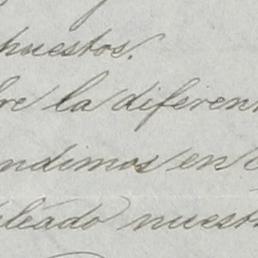 puestos.
re la diferen
ndimos en
leado nuest